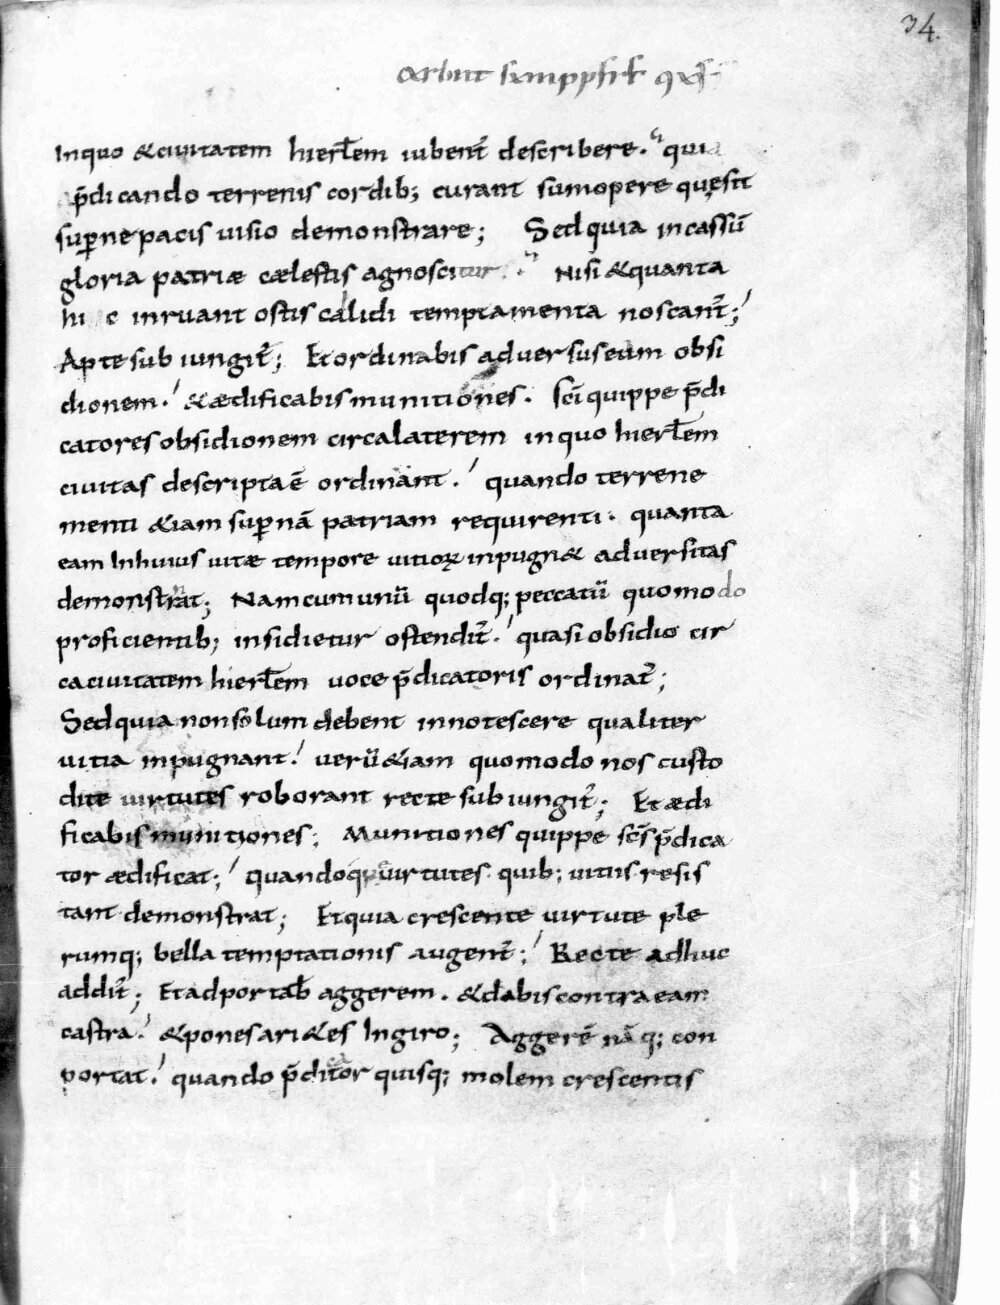 34.
In quo & ciuitatem hierłem iubent̄ describere. quia
p̄dicando terrenis cordib; curant sumopere quęsit
sup̱ne pacis uisio demonstrare; Sed quia incassū
gloria patriæ cælestis agnoscitur. Nisi & quanta
hic inruant ostis calidi temptamenta noscant̄;
Apte subiungit̄; Et ordinabis aduersus eam obsi
dionem. & ædificabis munitiones. sc̄i quippe p̄di
catores obsidionem circa laterem in quo hierłem
ciuitas descripta ē ordinant. quando terrene
menti &iam sup̱nā patriam requirenti. quanta
eam In huius uitæ tempore uitioꝝ inpugn& aduersitas
demonstrat; Nam cum unū quodq; peccatū quomodo
proficientib; insidietur ostendit̄. quasi obsidio cir
ca ciuitatem hierłem uoce p̄dicatoris ordinat̄;
Sed quia non solum debent innotescere qualiter
uitia inpugnant. uerū &iam quomodo nos custo
dite uirtutes roborant recte subiungit̄; Et ædi
ficabis munitiones; Munitiones quippe sc̄s p̄dica
tor ædificat; quando uirtutes quib; uitiis resis
tant demonstrat; Et quia crescente uirtute ple
rumq; bella temptationis augent̄; Recte adhuc
addit̄; Et adportab̄ aggerem. & dabis contra eam
castra. & pones ari&es In giro; Aggerē nāq; con
portat. quando p̄dicator quisq; molem crescentis